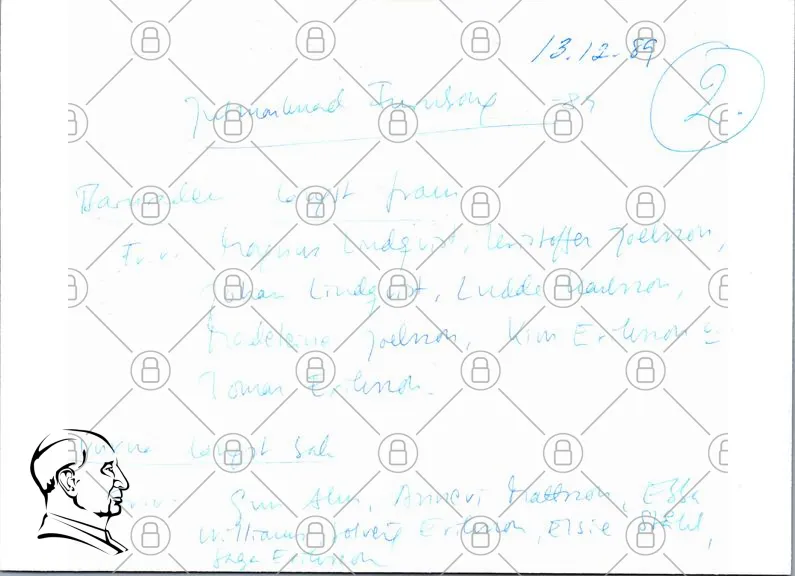 13.12.89
2.
Julmarknad -89
Barnen längst fram
Fr.v. Magnus Lindqvist, Kristoffer Joelsson,
Johan Lindqvist, Ludde Karlsson,
Madeleine Joelsson, Kim Eriksson o
Tomas Eriksson.
längst bak
Fr.v. Gun Alm, Annevi Mattsson, Ebba
Williams, Solveig Eriksson, Elsie Ståhl,
Saga Eriksson